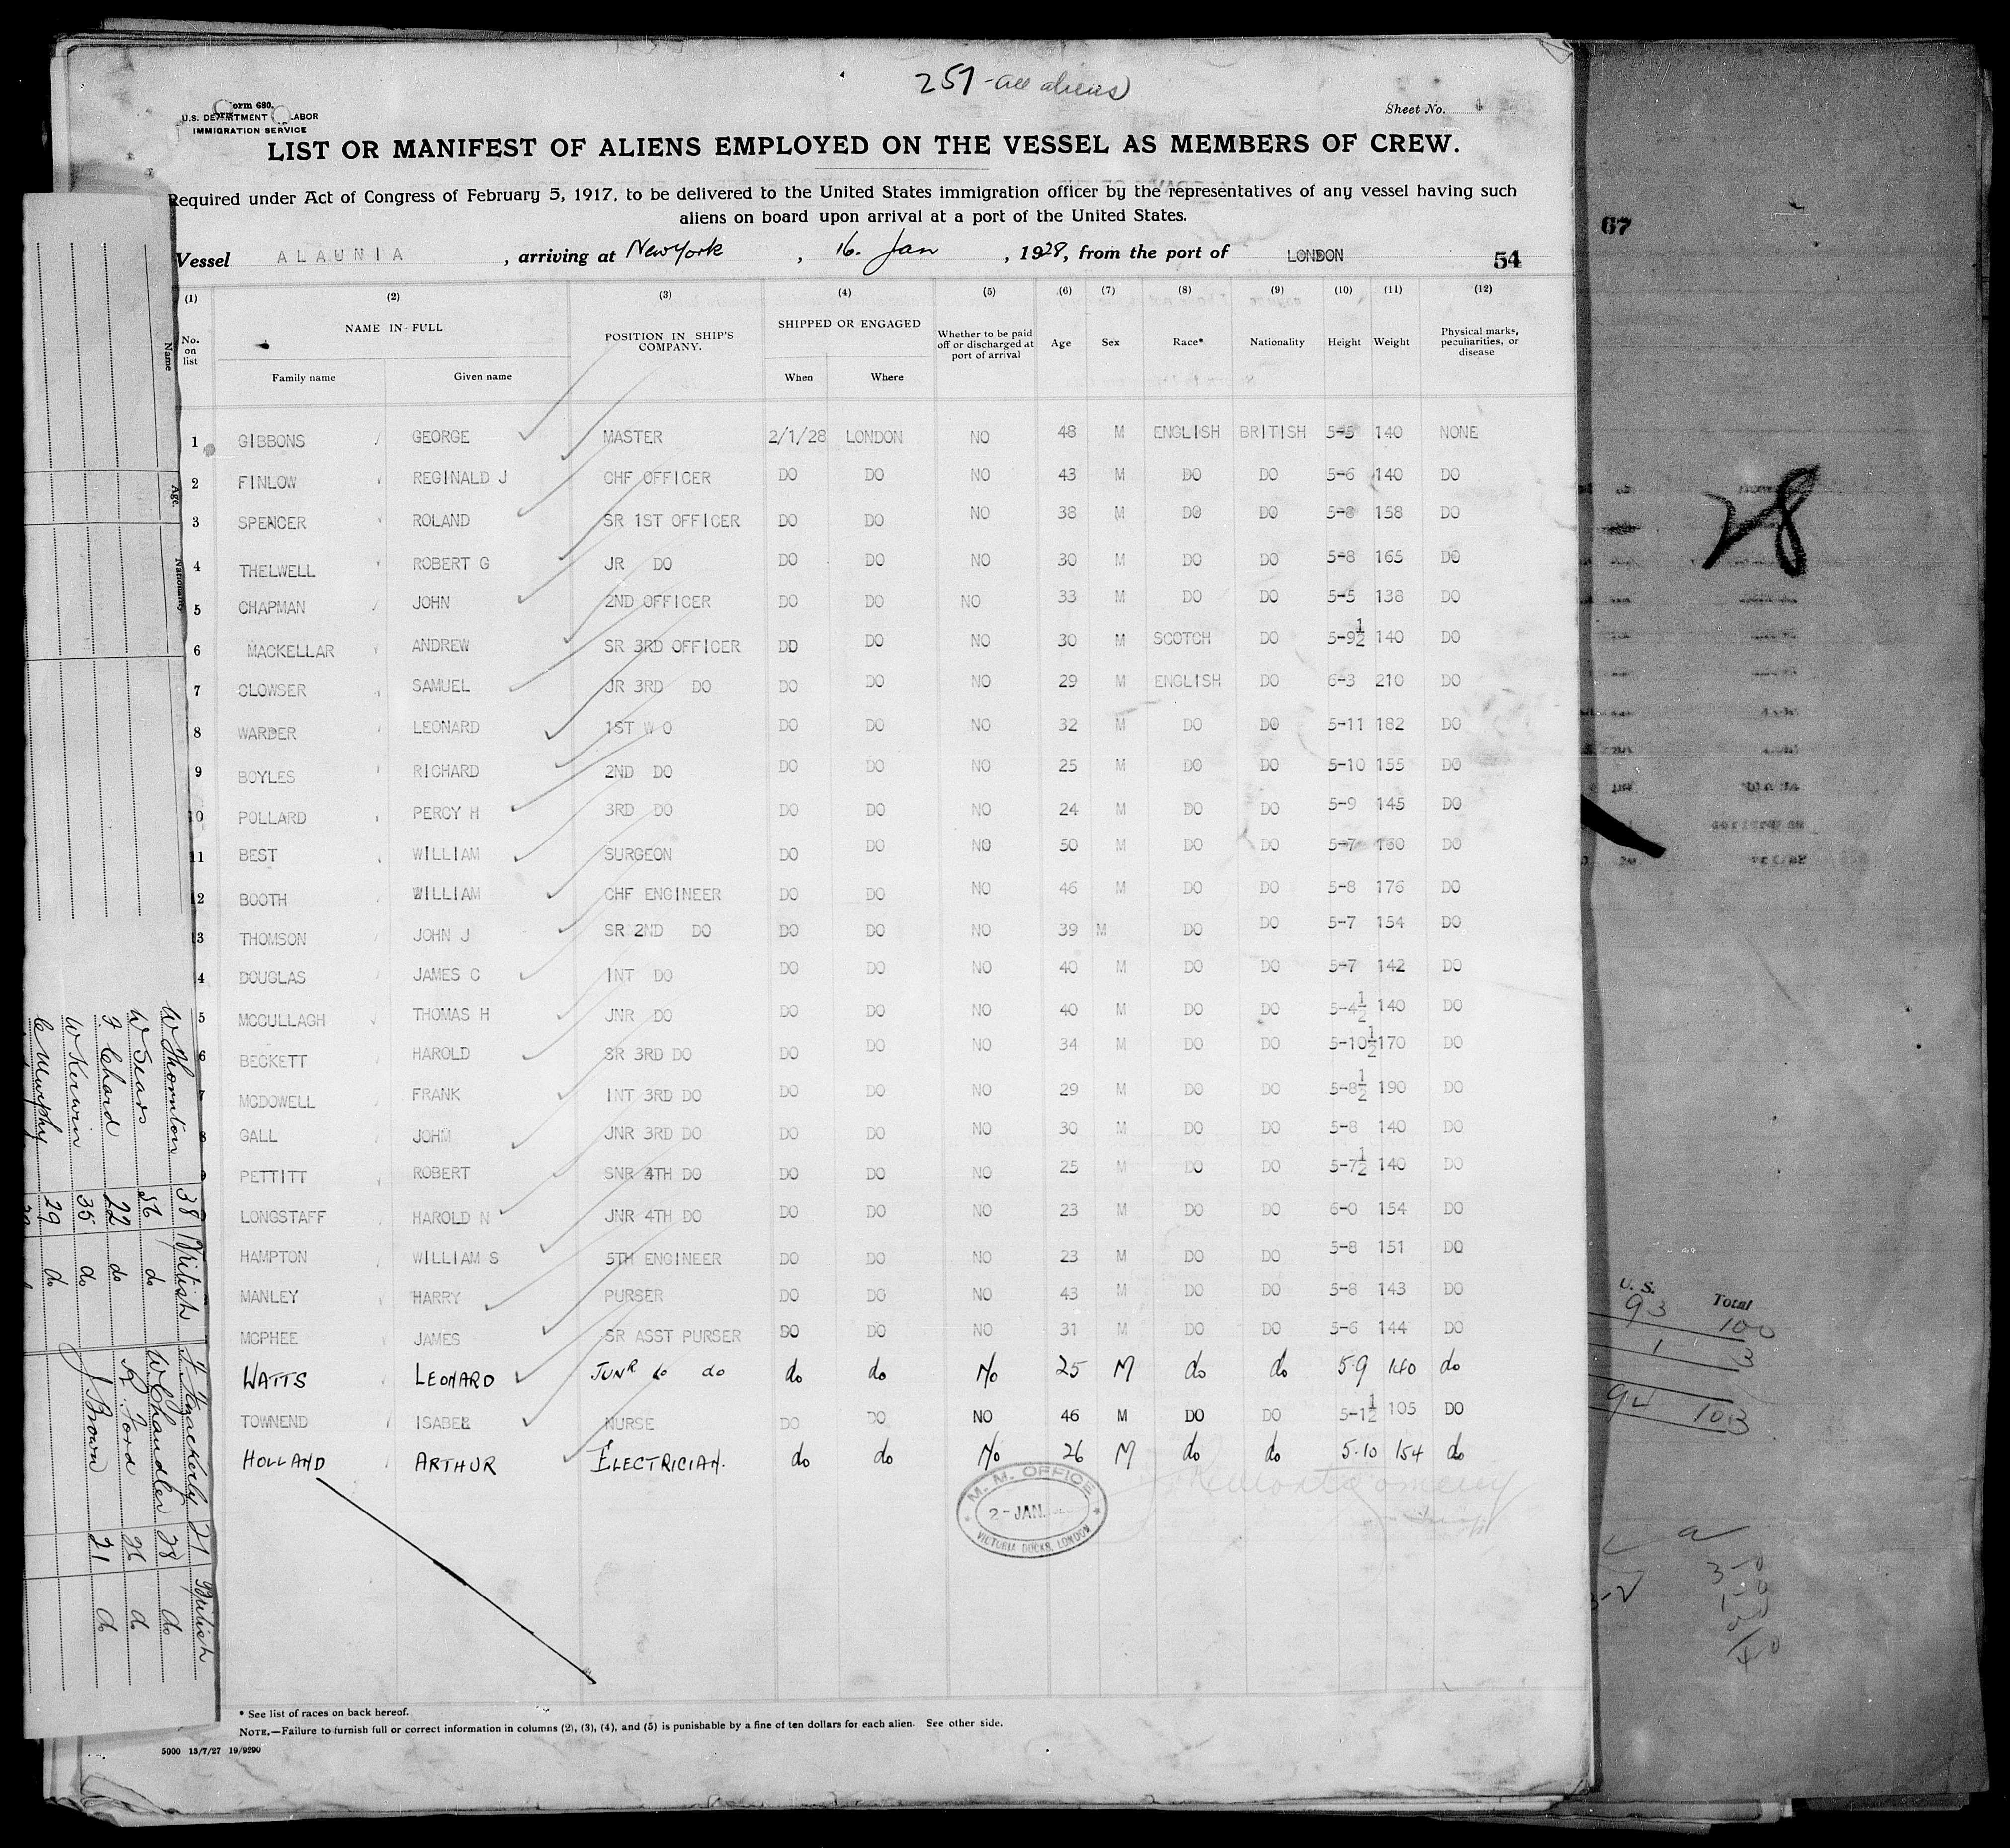 257 - all aliens
Form 680.
U.S. DEPARTMENT LABOR
IMMIGRATION SERVICE
Sheet No. 1
LIST OR MANIFEST OF ALIENS EMPLOYED ON THE VESSEL AS MEMBERS OF CREW.
Required under Act of Congress of February 5, 1917, to be delivered to the United States immigration officer by the representatives of any vessel having such
aliens on board upon arrival at a port of the United States.
Vessel ALAUNIA, arriving at New York, 16. Jan, 1928, from the port of LONDON 54
(1) (2) (3) (4) (5) (6) (7) (8) (9) (10) (11) (12)
No. on list NAME IN FULL POSITION IN SHIP'S COMPANY. SHIPPED OR ENGAGED Whether to be paid off or discharged at port of arrival Age Sex Race* Nationality Height Weight Physical marks, peculiarities, or disease
Family name Given name When Where
1 GIBBONS GEORGE MASTER 2/1/28 LONDON NO 48 M ENGLISH BRITISH 5-5 140 NONE
2 FINLOW REGINALD J CHF OFFICER DO DO NO 43 M DO DO 5-6 140 DO
3 SPENCER ROLAND SR 1ST OFFICER DO DO NO 38 M DO DO 5-8 158 DO
4 THELWELL ROBERT G JR DO DO DO NO 30 M DO DO 5-8 165 DO
5 CHAPMAN JOHN 2ND OFFICER DO DO NO 33 M DO DO 5-5 138 DO
6 MACKELLAR ANDREW SR 3RD OFFICER DO DO NO 30 M SCOTCH DO 5-9½ 140 DO
7 CLOWSER SAMUEL JR 3RD DO DO DO NO 29 M ENGLISH DO 6-3 210 DO
8 WARDER LEONARD 1ST W O DO DO NO 32 M DO DO 5-11 182 DO
9 BOYLES RICHARD 2ND DO DO DO NO 25 M DO DO 5-10 155 DO
10 POLLARD PERCY H 3RD DO DO DO NO 24 M DO DO 5-9 145 DO
11 BEST WILLIAM SURGEON DO DO NO 50 M DO DO 5-7 160 DO
12 BOOTH WILLIAM CHF ENGINEER DO DO NO 46 M DO DO 5-8 176 DO
13 THOMSON JOHN J SR 2ND DO DO DO NO 39 M DO DO 5-7 154 DO
4 DOUGLAS JAMES C INT DO DO DO NO 40 M DO DO 5-7 142 DO
5 MCCULLAGH THOMAS H JNR DO DO DO NO 40 M DO DO 5-4½ 140 DO
6 BECKETT HAROLD SR 3RD DO DO DO NO 34 M DO DO 5-10½ 170 DO
MCDOWELL FRANK INT 3RD DO DO DO NO 29 M DO DO 5-8½ 190 DO
GALL JOHM JNR 3RD DO DO DO NO 30 M DO DO 5-8 140 DO
PETTITT ROBERT SNR 4TH DO DO DO NO 25 M DO DO 5-7½ 140 DO
LONGSTAFF HAROLD N JNR 4TH DO DO DO NO 23 M DO DO 6-0 154 DO
HAMPTON WILLIAM S 5TH ENGINEER DO DO NO 23 M DO DO 5-8 151 DO
MANLEY HARRY PURSER DO DO NO 43 M DO DO 5-8 143 DO
MCPHEE JAMES SR ASST PURSER DO DO NO 31 M DO DO 5-6 144 DO
WATTS LEONARD JUNR do do do do No 25 M do do 5.9 140 do
TOWNEND ISABEL NURSE DO DO NO 46 M DO DO 5-1½ 105 DO
HOLLAND ARTHUR ELECTRICIAN. do do No 26 M do do 5.10 154 do
M. M. OFFICE
2-JAN.
VICTORIA DOCKS, LONDON
* See list of races on back hereof.
NOTE.—Failure to furnish full or correct information in columns (2), (3), (4), and (5) is punishable by a fine of ten dollars for each alien. See other side.
5000 13/7/27 19/9290
Name Age. Nationality
W Thornton 38 British
W Sears 56 do
F. Chard 22 do
W Kerwin 35 do
C Murphy 29 do
21 British
W Chandler 28 do
R. Ford 26 do
J Brown 21 do
67
28
U. S. Total
93 100
1 3
94 103